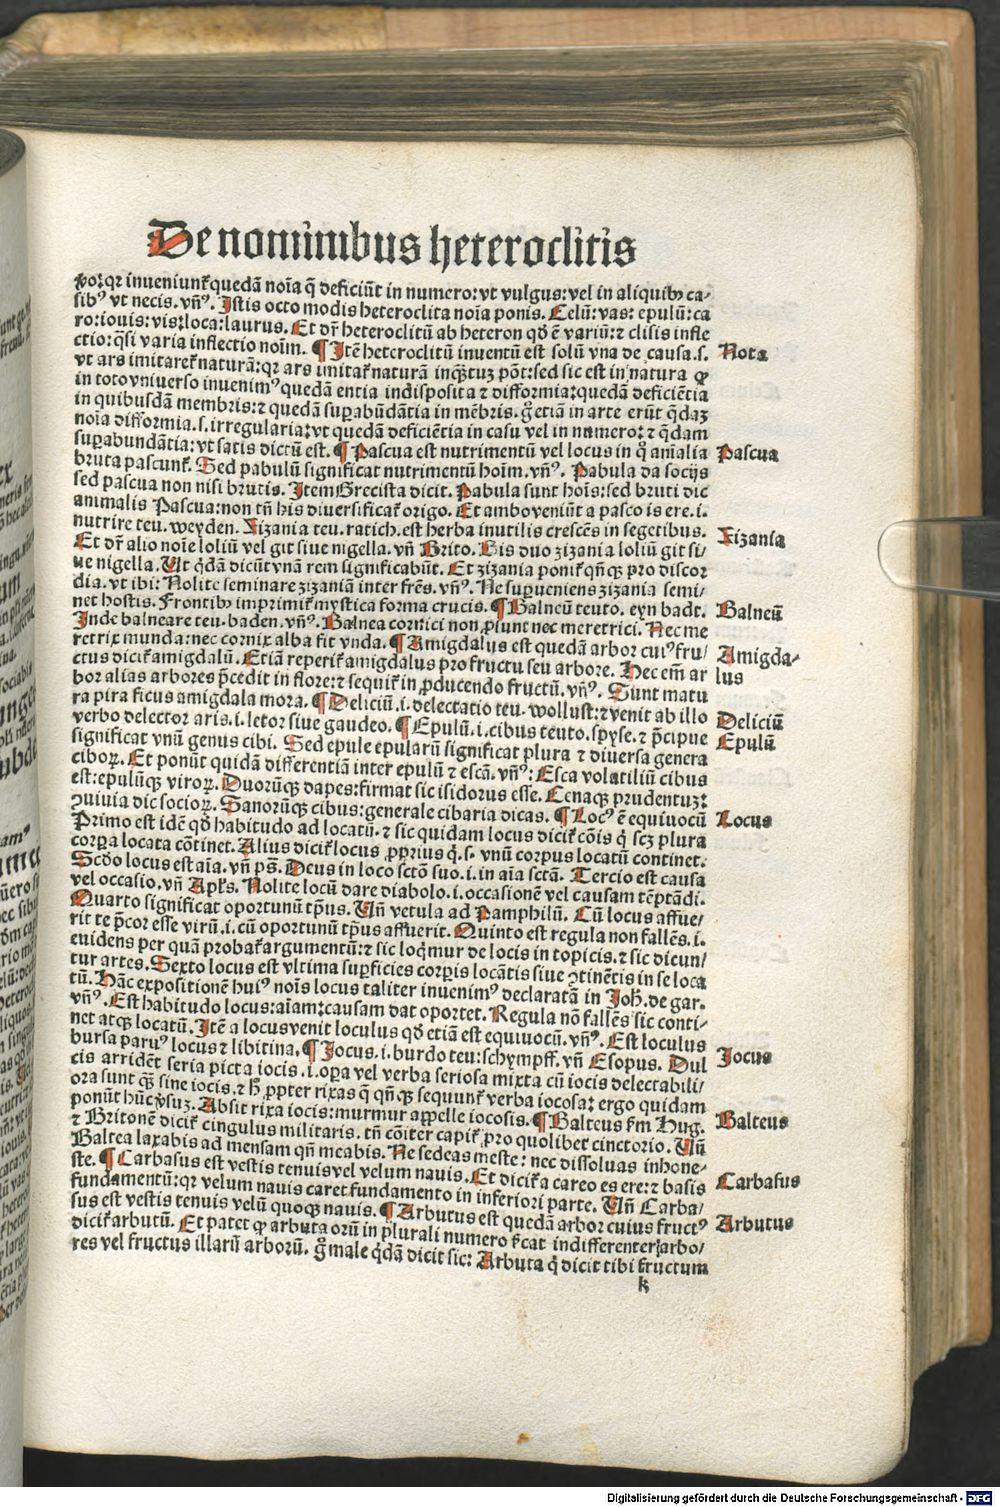 De nominibus heteroclitis
inueniunt᷑ quedā noīa q̄ deficiūt in numero: vt vulgus: vel in aliquibꝫ ca-
sibꝰ vt necis. vn̄ꝰ. Istis octo modis heteroclita noīa ponis. Celū: vas: epulū: ca
ro: iouis: vis: loca: laurus. Et dr̄ heteroclitū ab heteron qd̄ ē variū: ⁊ clisis infle
ctio: q̄si varia inflectio noīm. ¶ Itē heteroclitū inuentū est solū vna de causa. s.
Nota
vt ars imitaret᷑ naturā: qꝛ ars imitat᷑ naturā inq̄ꝫtuꝫ pōt: sed sic est in natura ꝙ
in toto vniuerso inuenimꝰ quedam entia indisposita ⁊ difformia: quedā deficiētia
in quibusdā membris: ⁊ quedā supabūdātia in mēbris. g̊ etiā in arte erūt q̄daꝫ
noīa difformia. s. irregularia: vt quedā deficiētia in casu vel in numero: ⁊ q̄dam
supabundātia: vt satis dictū est. ¶ Pascua est nutrimentū vel locus in q̊ animalia
Pascua
bruta pascunt᷑. Sed pabulū significat nutrimentū hoīm. vn̄ꝰ. Pabula da socijs
sed pascua non nisi brutis. Item Grecista dicit. Pabula sunt hoīs: sed bruti dic
animalis Pascua: non tn̄ his diuersificat᷑ origo. Et ambo veniūt a pasco is ere. i.
nutrire teu. weyden. Zizania teu. ratich. est herba inutilis crescēs in segetibus.
Zizania
Et dr̄ alio noīe loliū vel git siue nigella. vn̄ Brito. His duo zizania loliū git si/
ue nigella. Ut q̄dā dicūt vnā rem significabūt. Et zizania ponit᷑ qn̄qꝫ pro discor
dia. vt ibi: Nolite seminare zizaniā inter frēs. vn̄ꝰ. Ne supueniens zizania semi/
net hostis. Frontibꝫ imprimit᷑ mystica forma crucis. ¶ Balneū teuto. eyn badt.
Balneū
Inde balneare teu. baden. vn̄ꝰ. Balnea cornici non ꝓsunt nec meretrici. Nec me
retrix munda: nec cornix alba fit vnda. ¶ Amigdalus est quedā arbor cuiꝰ fru/
Amigda-
lus
ctus dicit᷑ amigdalū. Etiā reperit᷑ amigdalus pro fructu seu arbore. Hec em̄ ar
bor alias arbores p̄cedit in flore: ⁊ sequit᷑ in ꝓducendo fructū. vn̄ꝰ. Sunt matu
ra pira ficus amigdala mora. ¶ Deliciū. i. delectatio teu. wollust: ⁊ venit ab illo
Deliciū
verbo delector aris. i. letor siue gaudeo. ¶ Epulū. i. cibus teuto. spyse. ⁊ p̄cipue
Epulū
significat vnū genus cibi. Sed epule epularū significat plura ⁊ diuersa genera
ciboꝝ. Et ponūt quidā differentiā inter epulū ⁊ escā. vn̄ꝰ: Esca volatiliū cibus
est: epulūqꝫ viroꝝ. Duorūqꝫ dapes: firmat sic isidorus esse. Cenaqꝫ prudentuꝫ:
ꝯuiuia dic socioꝝ. Sanorūqꝫ cibus: generale cibaria dicas. ¶ Locꝰ ē equiuocū
Locus
Primo est idē qd̄ habitudo ad locatū. ⁊ sic quidam locus dicit᷑ cōis q̄ scꝫ plura
corpa locata cōtinet. Alius dicit᷑ locus ꝓprius q̄. s. vnū corpus locatū continet.
Scdo locus est aīa. vn̄ ps̄. Deus in loco sctō suo. i. in aīa sctā. Tercio est causa
vel occasio. vn̄ Apl̄s. Nolite locū dare diabolo. i. occasionē vel causam tēptādi.
Quarto significat oportunū tp̄us. Un̄ vetula ad Pamphilū. Cū locus affue/
rit te p̄cor esse virū. i. cū oportunū tp̄us affuerit. Quinto est regula non fallēs. i.
euidens per quā probat᷑ argumentū: ⁊ sic loqīmur de locis in topicis. ⁊ sic dicun/
tur artes. Sexto locus est vltima supficies corpis locātis siue ꝯtinētis in se loca
tū. Hāc expositionē huiꝰ noīs locus taliter inuenimꝰ declaratā in Joh̄. de gar.
vn̄ꝰ. Est habitudo locus: aīam: causam dat oportet. Regula nō fallēs sic conti/
net atqꝫ locatū. Itē a locus venit loculus qd̄ etiā est equiuocū. vn̄ꝰ. Est loculus
bursa paruꝰ locus ⁊ libitina. ¶ Jocus. i. burdo teu: schympff. vn̄ Esopus. Dul
Jocus
cis arridēt seria picta iocis. i. opa vel verba seriosa mixta cū iocis delectabili/
ora sunt q̄ꝫ sine iocis. ⁊ h̄ ꝓpter rixas q̄ qn̄qꝫ sequunt᷑ verba iocosa: ergo quidam
ponūt hūc v̄suꝫ. Absit rixa iocis: murmur appelle iocosis. ¶ Balteus fm̄ Hug.
Balteus
⁊ Britonē dicit᷑ cingulus militaris. tn̄ cōiter capit᷑ pro quolibet cinctorio. Un̄
Baltea laxabis ad mensam qn̄ meabis. Ne sedeas meste: nec dissoluas inhone/
ste. ¶ Carbasus est vestis tenuis vel velum nauis. Et dicit᷑ a careo es ere: ⁊ basis
Carbasus
fundamentū: qꝛ velum nauis caret fundamento in inferiori parte. Un̄ Carba/
sus est vestis tenuis velū quoqꝫ nauis. ¶ Arbutus est quedā arbor cuius fructꝰ
Arbutus
dicit᷑ arbutū. Et patet ꝙ arbuta orū in plurali numero significat indifferenter arbo/
res vel fructus illarū arborū. g̊ male q̄dā dicit sic: Arbuta q̄ dicit tibi fructum
k
Digitalisierung gefördert durch die Deutsche Forschungsgemeinschaft - DFG